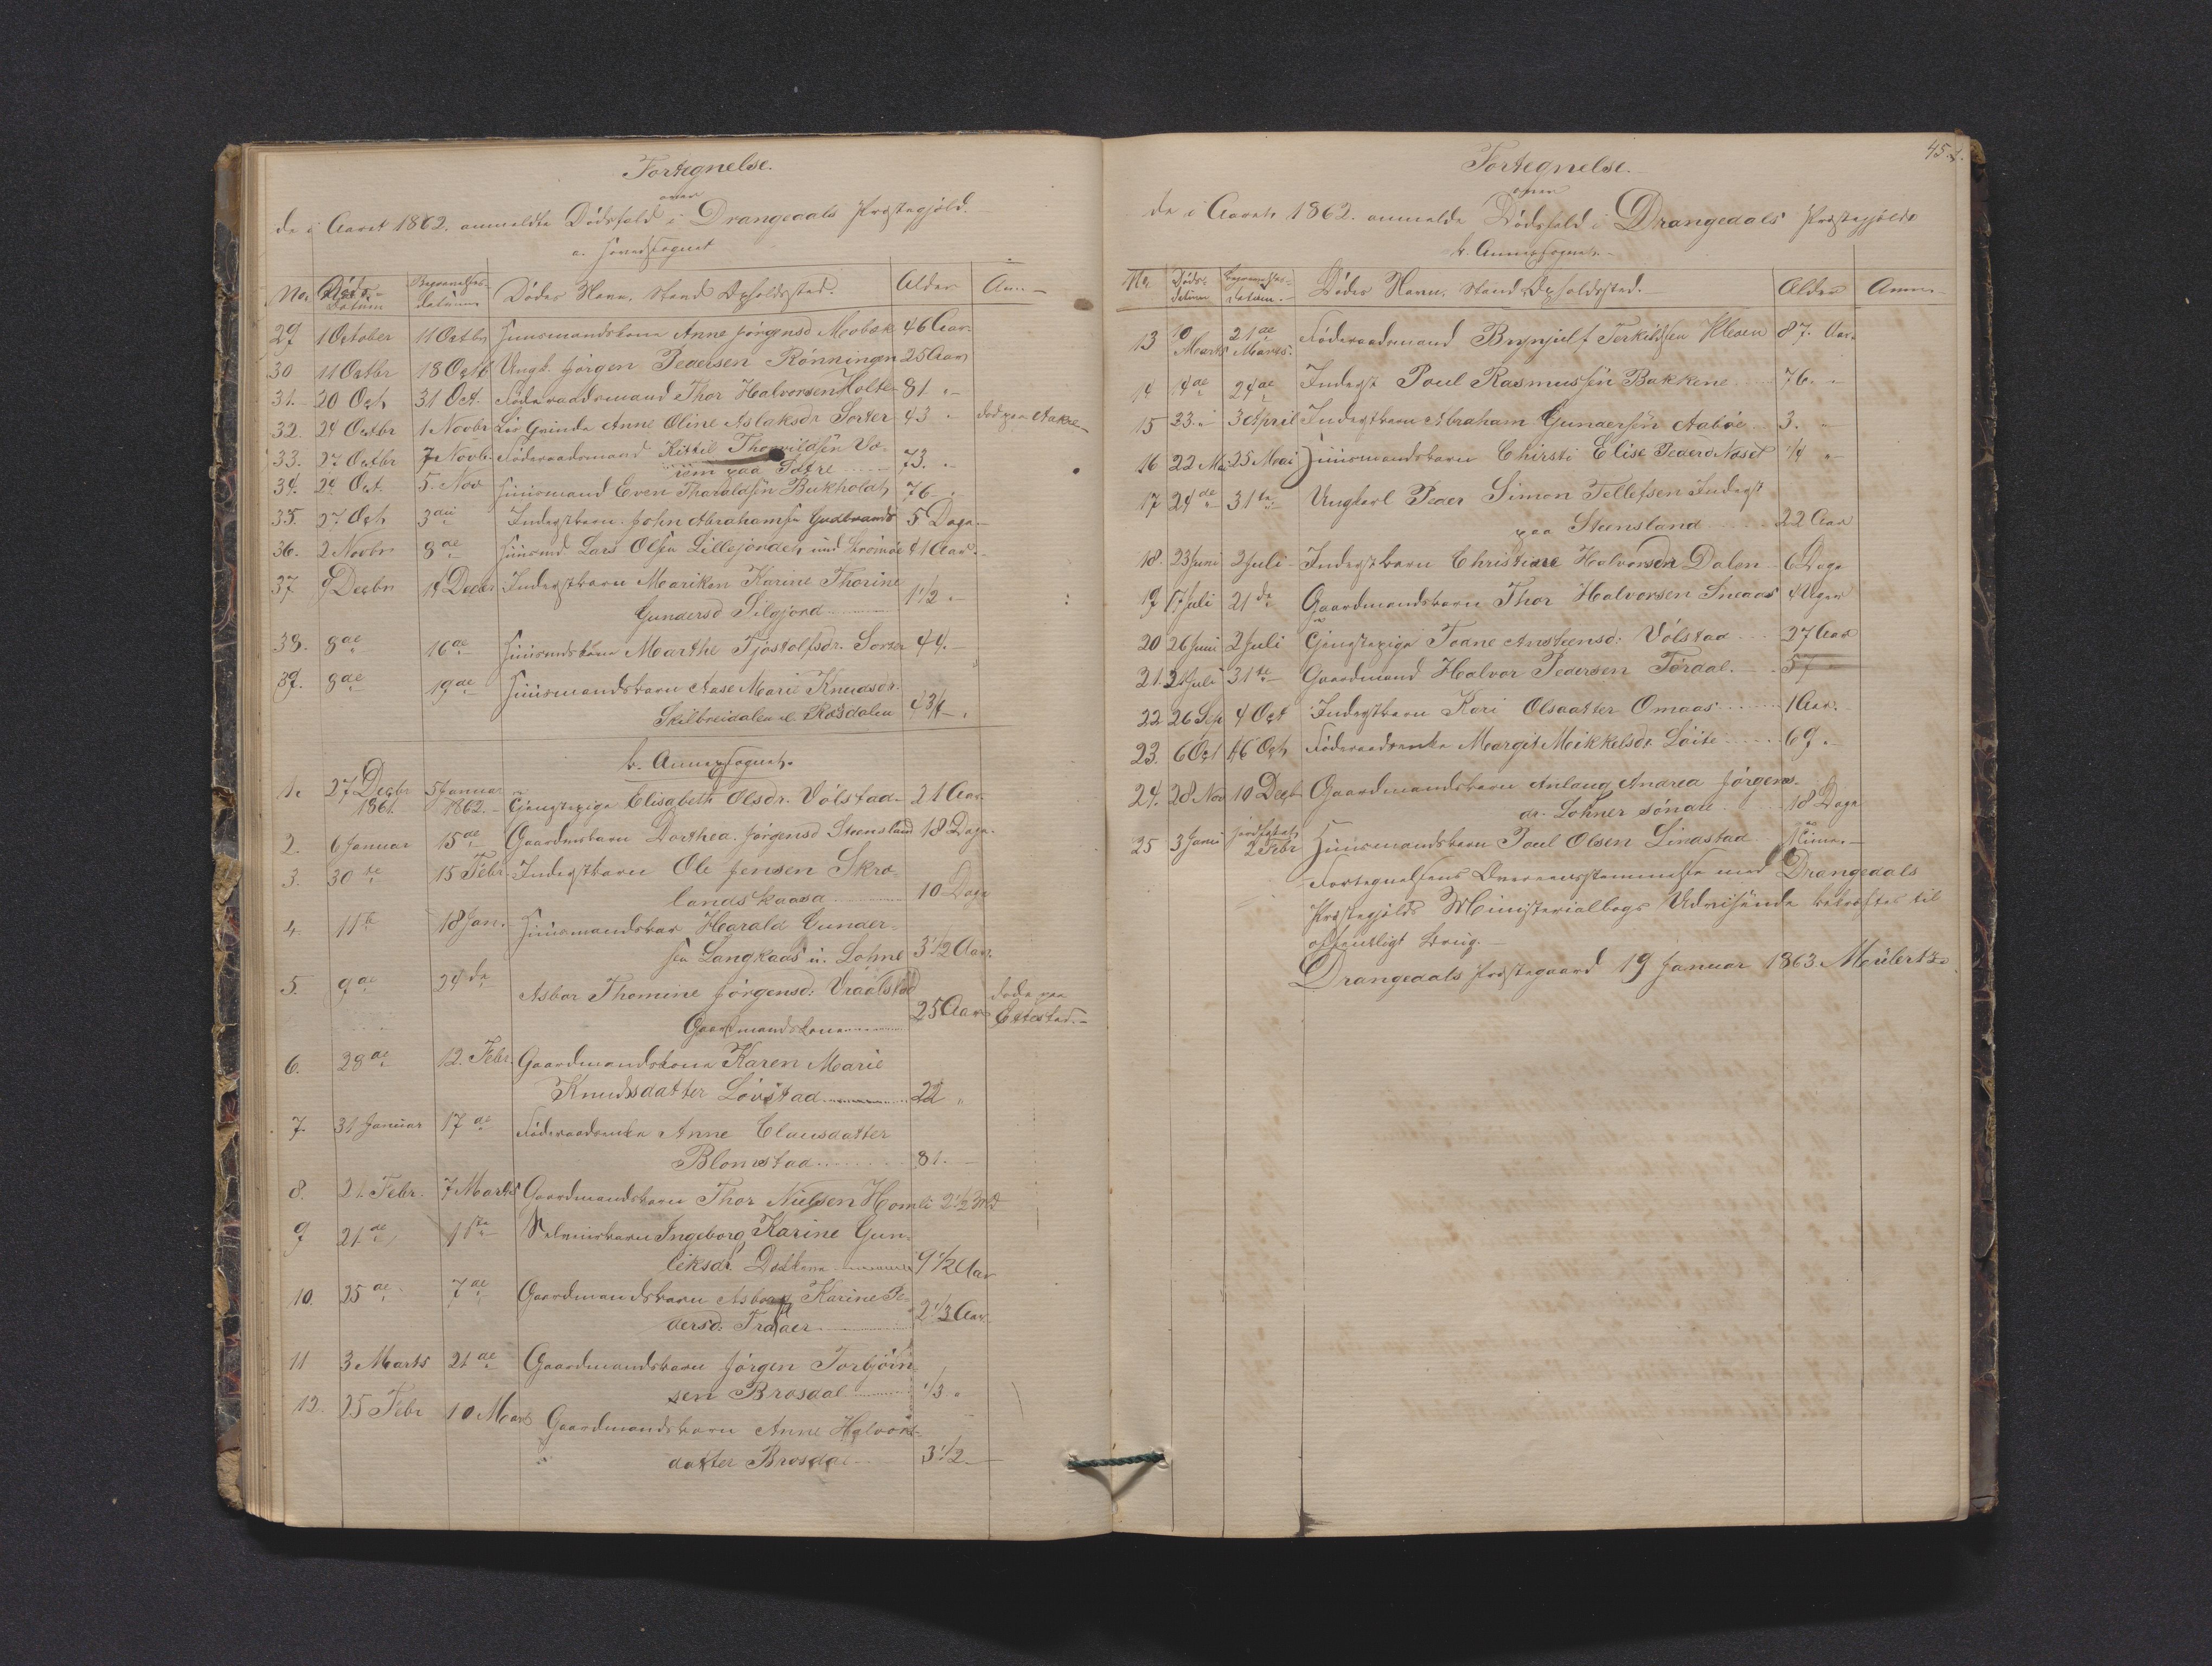 Fortegnelse.
over
de i Aaret 1862. anmeldte Dödsfald i Drangedals Præstegjæld.
a. Hovedsognet
No. Döds- Datum Begravelses- datum Dödes Navn, Stand Opholdssted. Alder An.-
29 1 October 11 Octbr Huusmandskone Anne Jörgensd Mobæk 46 Aar.
30 11 Octbr 18 Octb Ungk. Jörgen Pedersen Rönningen 25 Aar
31. 20 Oct. 31 Oct. Föderaadsmand Thor Halvorsen Holte 81 "-
32. 24 Octbr 1 Novbr Lös Qvinde Anne Oline Aslaksdr Sorter 43 " död paa Aakre-
33. 27 Octbr 7 Novb. Föderaadsmand Kittil Thorvildsen Vo-
um paa Sætre 73. "-
34. 24 Oct. 5. Nov Huusmand Even Tharaldsen Bukholdt 76 - "
35. 27 Oct. 3die Inderstbarn John Abrahamsen Gudbrands 5 Dage
36. 2 Novbr 8de Huusmd. Lars Olsen Lillejordet und Strömöe 41 Aar.
37 9 Decbr 14 Decbr Inderstbarn Mariken Karine Thorine
Gundersd Silgjord 1 1/2 "-
38. 8de 16de Huusmdskone Marthe Tjöstolfsdr. Sorter 44.
39. 8de 19de Huusmandsbarn Aase Marie Knudsdr.
Skilbreidalen u. Rosdalen 4 3/4 - "
b. Annexsognet.
1. 27 Decbr 1861. 5 Januar 1862.- Tjenestepige Elisabeth Olsdr. Völstad- 21 Aar
2. 6 Januar 15de Gaardmsbarn Dorthea Jörgensd Steensland 18 Dage.
3. 30te 15 Febr. Inderstbarn Ole Jensen Skro-
lands kaasa 10 Dage
4. 11te 18 Jan. Huusmandsbar Harald Gunder-
sen Langkaas u. Lohne 3 1/2 Aar.
5. 9de 24de Asbor Thomine Jörgensd: Vraalstad
Gaardmandskone 25 Aar döde paa
Eetestad.-
6. 28de 12. Febr. Gaardmandskone Karen Marie
Knudsdatter Lövstad 22 "
7. 31 Januar 17de Föderaadsenke Anne Clausdatter
Blomstad 81. -
8. 21. Febr. 7 Marts Gaardmandsbarn Thor Nielsen Homli 2 1/2 Md
9 21de 1ste Selveierbarn Ingeborg Karine Gun-
leksdr. Dobbene 9 1/2 Aar
10. 25de 7de Gaardmandsbarn Asborg Karine Pe-
dersd: Traaer 2 1/3 Aar
11 3 Marts 21de Gaardmandsbarn Jörgen Torbjörn-
sen Brosdal 1/3 "
12. 25 Febr 10 Mars Gaardmandsbarn Anne Halvors-
datter Brosdal 3 1/2. -
45.
Fortegnelse.
over
de i Aaret 1862. anmeldte Dödsfald i Drangedals Præstegjæld
b. Annexsognet.-
No. Döds- datum Begravelses- datum.- Dödes Navn, Stand Opholdssted. Alder Anm.-
13 10 Marts 21de Marts. Föderaadsmand Brynjulf Terkildsen Kleven 87. Aar.
14 14de 24de Inderst Poul Rasmussen Bakkene 76. "-
15 23. " 3 April Inderstbarn Abraham Gundersen Aaböe 3. "
16 22 Mai 25 Mai Huusmandsbarn Chirsti Elise Pedersd Næset 1/4 "
17 24de 31te Ungkarl Peder Simon Tellefsen Inderst
paa Steensland 22 Aar
18. 23 Juni 2 Juli Inderstbarn Christiane Halvorsdr Dalen 6 Dage
19 17 Juli 21de Gaardmandsbarn Thor Halvorsen Sneaas 4 Uger
20 26 Juni 2 Juli Tjenestepige Tone Anstensd: Völstad 27 Aar
21. 21 Juli 31te Gaardmand Halvor Pedersen Tördal. 57
22 26 Sep 4 Oct Inderstbarn Kari Olsdatter Omaas 1 Aar.
23. 6 Oct 16 Oct. Föderaadsenke Margit Mikkelsdr. Löite 69. -
24. 28 Nov 10 Decb Gaardmandsbarn Anlaug Andrea Jörgens-
dr. Lohner söndre 18 Dage
25 3 Juni jordfæstet 2 Febr Huusmandsbarn Poul Olsen Lindstad 1 Time.-
Fortegnelsens Overeensstemmelse med Drangedals
Præstegjælds Ministerialbogs Udvisende bekræftes til
offentligt Brug.-
Drangedals Præstegaard 19 Januar 1863. Meülertz.